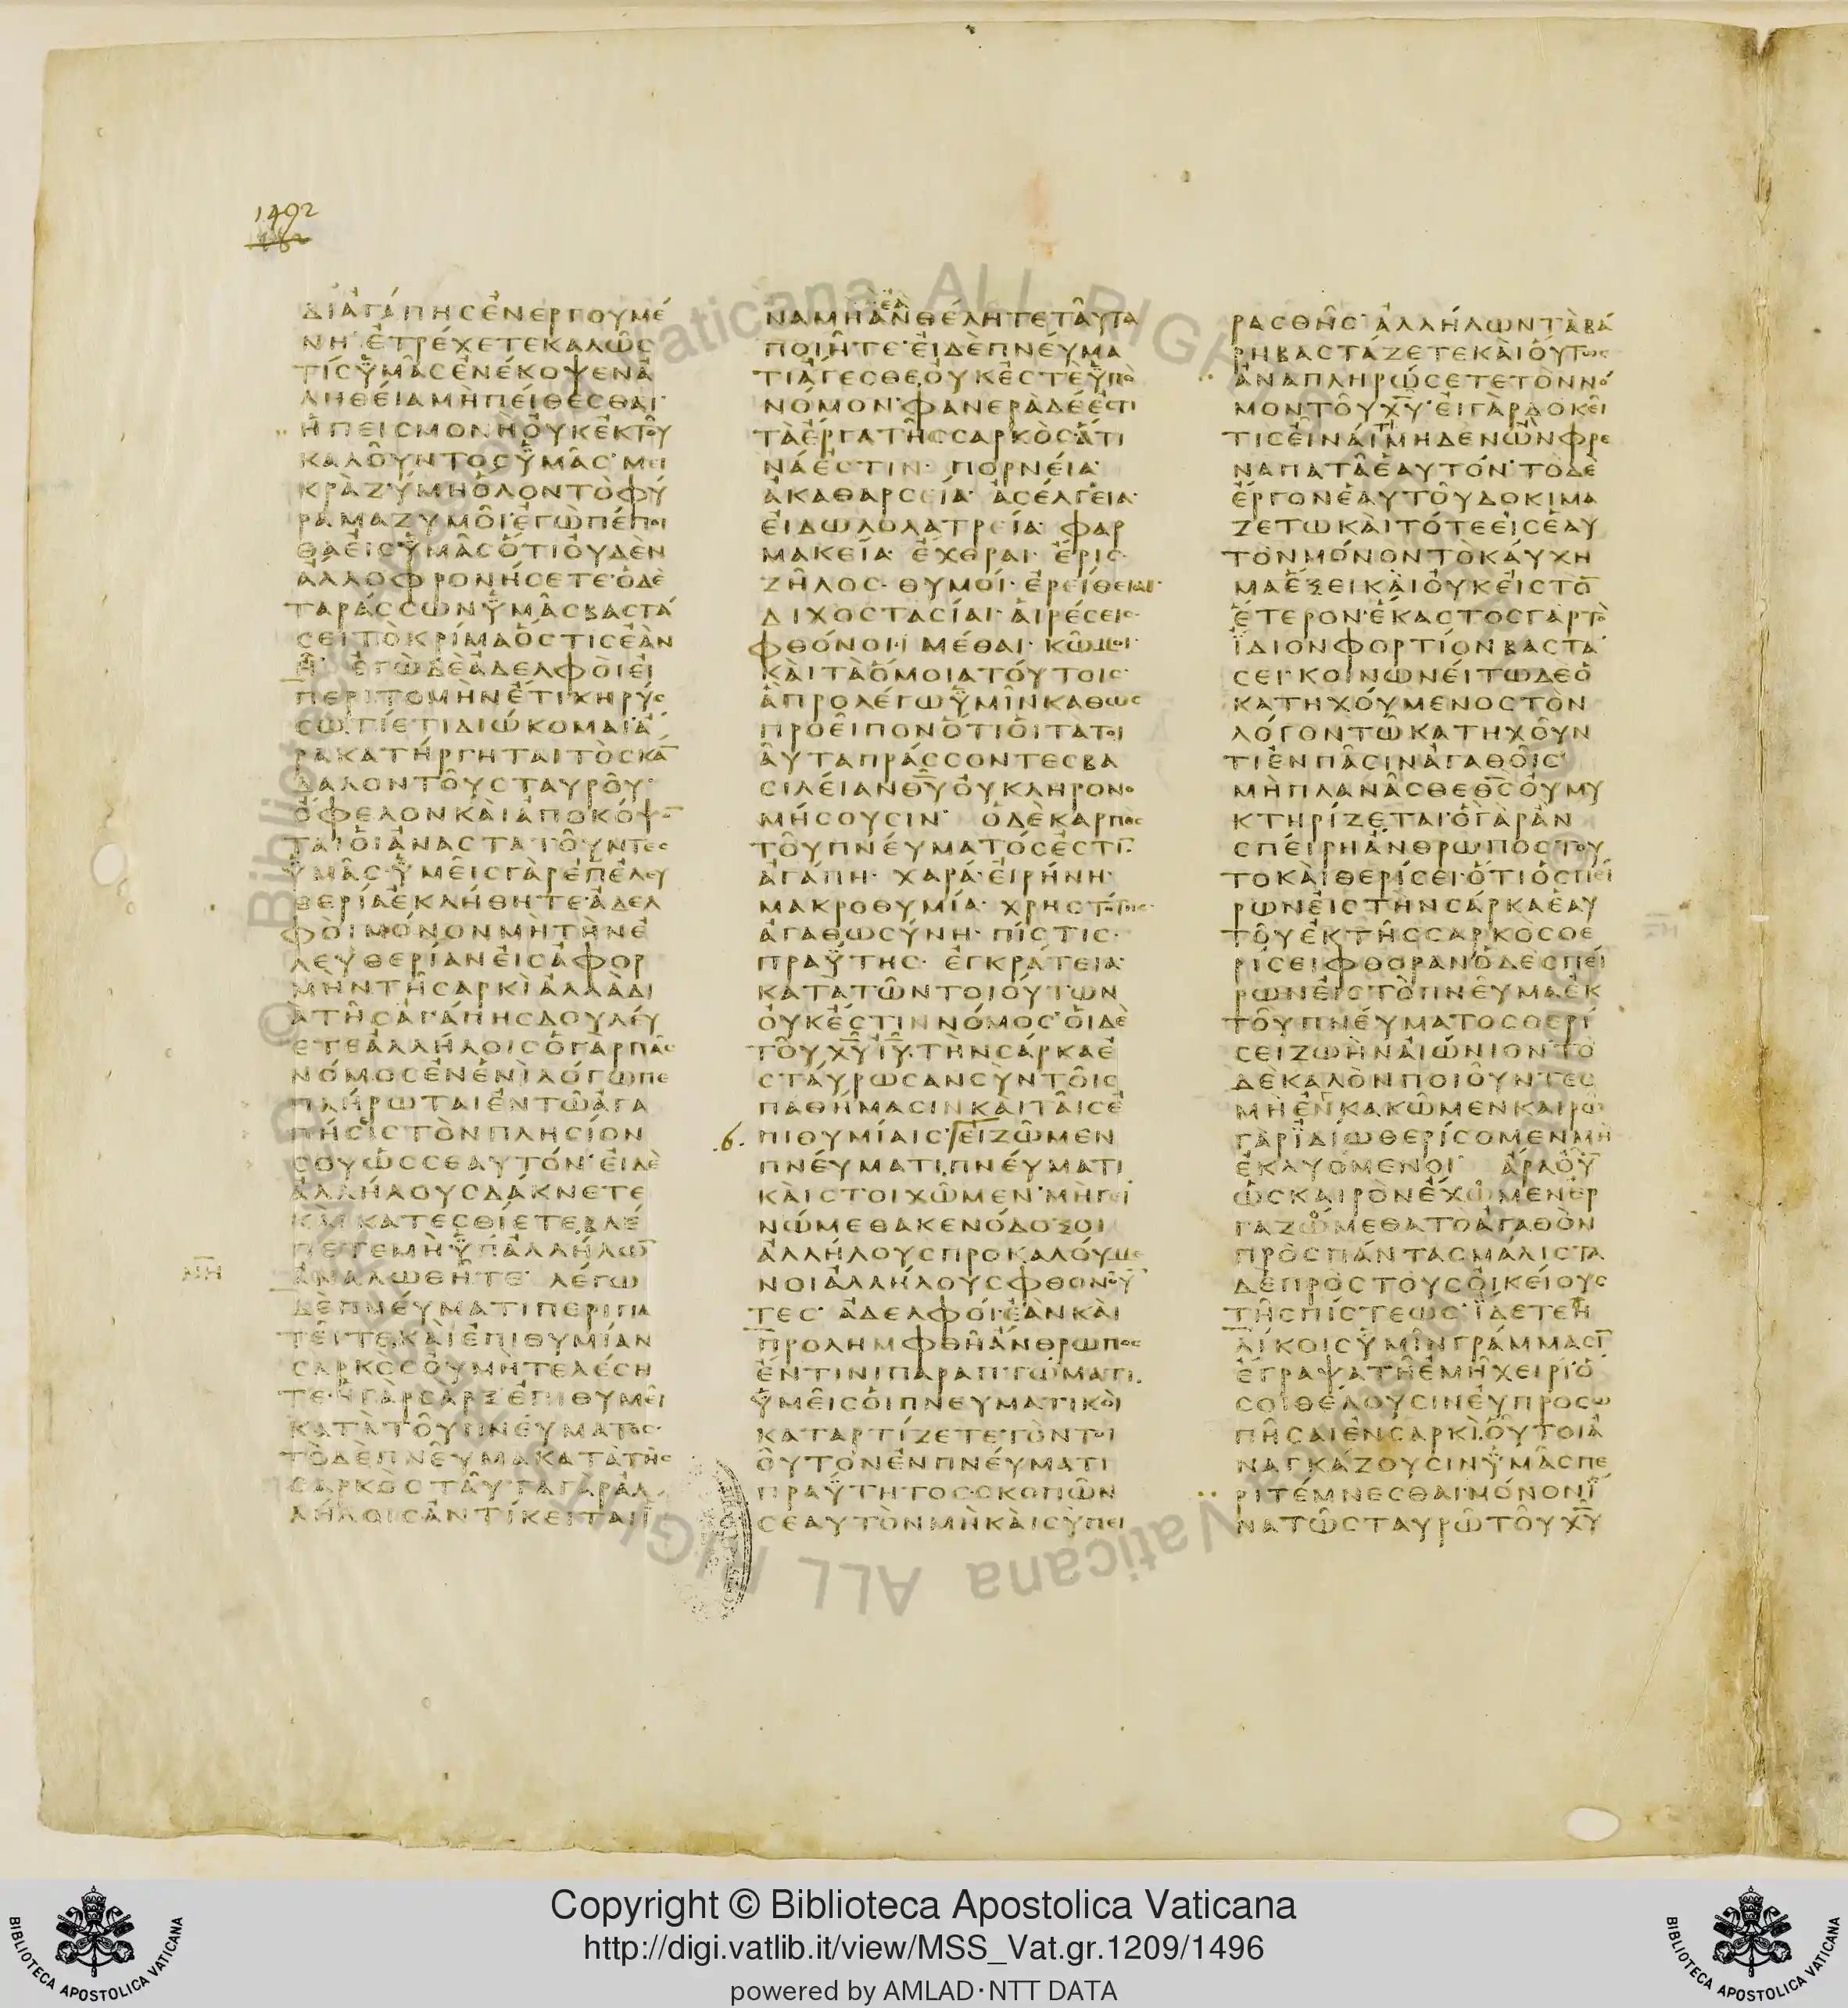 1492
ΔΙΑΓΑΠΗΣΕΝΕΡΓΟΥΜΕ
ΝΗ ΕΤΡΕΧΕΤΕΚΑΛΩΣ
ΤΙΣΥΜΑΣΕΝΕΚΟΨΕΝΑ
ΛΗΘΕΙΑΜΗΠΕΙΘΕΣΘΑΙ
ΗΠΕΙΣΜΟΝΗΟΥΚΕΚΤΟΥ
ΚΑΛΟΥΝΤΟΣΥΜΑΣ ΜΕΙ
ΚΡΑΖΥΜΗΟΛΟΝΤΟΦΥ
ΡΑΜΑΖΥΜΟΙ ΕΓΩΠΕΠΟΙ
ΘΑΕΙΣΥΜΑΣΟΤΙΟΥΔΕΝ
ΑΛΛΟΦΡΟΝΗΣΕΤΕ ΟΔΕ
ΤΑΡΑΣΣΩΝΥΜΑΣΒΑΣΤΑ
ΣΕΙΤΟΚΡΙΜΑΟΣΤΙΣΕΑΝ
Η ΕΓΩΔΕΑΔΕΛΦΟΙΕΙ
ΠΕΡΙΤΟΜΗΝΕΤΙΚΗΡΥΣ
ΣΩ ΤΙΕΤΙΔΙΩΚΟΜΑΙ Α
ΡΑΚΑΤΗΡΓΗΤΑΙΤΟΣΚΑ̅
ΔΑΛΟΝΤΟΥΣΤΑΥΡΟΥ
ΟΦΕΛΟΝΚΑΙΑΠΟΚΟΨΟ̅
ΤΑΙΟΙΑΝΑΣΤΑΤΟΥΝΤΕΣ
ΥΜΑΣ ΥΜΕΙΣΓΑΡΕΠΕΛΕΥ
ΘΕΡΙΑΕΚΛΗΘΗΤΕ ΑΔΕΛ
ΦΟΙ ΜΟΝΟΝΜΗΤΗΝΕ
ΛΕΥΘΕΡΙΑΝΕΙΣΑΦΟΡ
ΜΗΝΤΗΣΑΡΚΙΑΛΛΑΔΙ
ΑΤΗΣΑΓΑΠΗΣΔΟΥΛΕΥ
ΕΤΕΑΛΛΗΛΟΙΣΟΓΑΡΠΑΣ
ΝΟΜΟΣΕΝΕΝΙΛΟΓΩΠΕ
ΠΛΗΡΩΤΑΙΕΝΤΩΑΓΑ
ΠΗΣΙΣΤΟΝΠΛΗΣΙΟΝ
ΣΟΥΩΣΣΕΑΥΤΟΝ ΕΙΔΕ
ΑΛΛΗΛΟΥΣΔΑΚΝΕΤΕ
ΚΑΙ ΚΑΤΕΣΘΙΕΤΕ ΒΛΕ
ΠΕΤΕΜΗΥΠΑΛΛΗΛΩ̅
ΝΗ ΑΝΑΛΩΘΗΤΕ ΛΕΓΩ
ΔΕΠΝΕΥΜΑΤΙΠΕΡΙΠΑ
ΤΕΙΤΕΚΑΙΕΠΙΘΥΜΙΑΝ
ΣΑΡΚΟΣΟΥΜΗΤΕΛΕΣΗ
ΤΕ ΗΓΑΡΣΑΡΞΕΠΙΘΥΜΕΙ
ΚΑΤΑΤΟΥΠΝΕΥΜΑΤΟΣ
ΤΟΔΕΠΝΕΥΜΑΚΑΤΑΤΗΣ
ΣΑΡΚΟΣΤΑΥΤΑΓΑΡΑΛ
ΛΗΛΟΙΣΑΝΤΙΚΕΙΤΑΙΪ
ΝΑΜΗΑΝΘΕΛΗΤΕΤΑΥΤΑ
ΠΟΙΗΤΕ ΕΙΔΕΠΝΕΥΜΑ
ΤΙΑΓΕΣΘΕΟΥΚΕΣΤΕΥΠΟ
ΝΟΜΟΝ ΦΑΝΕΡΑΔΕΕΣΤΙ
ΤΑΕΡΓΑΤΗΣΣΑΡΚΟΣ ΑΤΙ
ΝΑΕΣΤΙΝ ΠΟΡΝΕΙΑ
ΑΚΑΘΑΡΣΕΙΑ ΑΣΕΛΓΕΙΑ
ΕΙΔΩΛΟΛΑΤΡΕΙΑ ΦΑΡ
ΜΑΚΕΙΑ ΕΧΘΡΑΙ ΕΡΙΣ
ΖΗΛΟΣ ΘΥΜΟΙ ΕΡΕΙΘΕΙΑΙ
ΔΙΧΟΣΤΑΣΙΑΙ ΑΙΡΕΣΕΙΣ
ΦΘΟΝΟΙ ΜΕΘΑΙ ΚΩΜΟΙ
ΚΑΙΤΑΟΜΟΙΑΤΟΥΤΟΙΣ
ΑΠΡΟΛΕΓΩΥΜΙΝΚΑΘΩΣ
ΠΡΟΕΙΠΟΝΟΤΙΟΙΤΑΤΟΙ
ΑΥΤΑΠΡΑΣΣΟΝΤΕΣΒΑ
ΣΙΛΕΙΑΝΘ̅Υ̅ΟΥΚΛΗΡΟΝΟ
ΜΗΣΟΥΣΙΝ ΟΔΕΚΑΡΠΟΣ
ΤΟΥΠΝΕΥΜΑΤΟΣΕΣΤΙ̅
ΑΓΑΠΗ ΧΑΡΑ ΕΙΡΗΝΗ
ΜΑΚΡΟΘΥΜΙΑ ΧΡΗΣΤΟΤΗΣ
ΑΓΑΘΩΣΥΝΗ ΠΙΣΤΙΣ
ΠΡΑΫΤΗΣ ΕΓΚΡΑΤΕΙΑ
ΚΑΤΑΤΩΝΤΟΙΟΥΤΩΝ
ΟΥΚΕΣΤΙΝΝΟΜΟΣ ΟΙΔΕ
ΤΟΥΧ̅Υ̅Ι̅Υ̅ ΤΗΝΣΑΡΚΑΕ
ΣΤΑΥΡΩΣΑΝΣΥΝΤΟΙΣ
ΠΑΘΗΜΑΣΙΝΚΑΙΤΑΙΣΕ
6 ΠΙΘΥΜΙΑΙΣ ΕΙΖΩΜΕΝ
ΠΝΕΥΜΑΤΙ ΠΝΕΥΜΑΤΙ
ΚΑΙΣΤΟΙΧΩΜΕΝ ΜΗΓΕΙ
ΝΩΜΕΘΑΚΕΝΟΔΟΞΟΙ
ΑΛΛΗΛΟΥΣΠΡΟΚΑΛΟΥΜΕ
ΝΟΙΑΛΛΗΛΟΥΣΦΘΟΝΟΥ̅
ΤΕΣ ΑΔΕΛΦΟΙ ΕΑΝΚΑΙ
ΠΡΟΛΗΜΦΘΗΑΝΘΡΩΠΟΣ
ΕΝΤΙΝΙΠΑΡΑΠΤΩΜΑΤΙ
ΥΜΕΙΣΟΙΠΝΕΥΜΑΤΙΚΟΙ
ΚΑΤΑΡΤΙΖΕΤΕΤΟΝΤΟΙ
ΟΥΤΟΝΕΝΠΝΕΥΜΑΤΙ
ΠΡΑΫΤΗΤΟΣ ΣΚΟΠΩΝ
ΣΕΑΥΤΟΝΜΗΚΑΙΣΥΠΕΙ
ΡΑΣΘΗΣ ΑΛΛΗΛΩΝΤΑΒΑ
ΡΗΒΑΣΤΑΖΕΤΕΚΑΙΟΥΤΩΣ
ΑΝΑΠΛΗΡΩΣΕΤΕΤΟΝΝΟ
ΜΟΝΤΟΥΧ̅Υ̅ ΕΙΓΑΡΔΟΚΕΙ
ΤΙΣΕΙΝΑΙΤΙΜΗΔΕΝΩΝΦΡΕ
ΝΑΠΑΤΑΕΑΥΤΟΝ ΤΟΔΕ
ΕΡΓΟΝΕΑΥΤΟΥΔΟΚΙΜΑ
ΖΕΤΩΚΑΙΤΟΤΕΕΙΣΕΑΥ
ΤΟΝΜΟΝΟΝΤΟΚΑΥΧΗ
ΜΑΕΞΕΙΚΑΙΟΥΚΕΙΣΤΟ̅
ΕΤΕΡΟΝ ΕΚΑΣΤΟΣΓΑΡΤΟ
ΙΔΙΟΝΦΟΡΤΙΟΝΒΑΣΤΑ
ΣΕΙ ΚΟΙΝΩΝΕΙΤΩΔΕΟ
ΚΑΤΗΧΟΥΜΕΝΟΣΤΟΝ
ΛΟΓΟΝΤΩΚΑΤΗΧΟΥΝ
ΤΙΕΝΠΑΣΙΝΑΓΑΘΟΙΣ
ΜΗΠΛΑΝΑΣΘΕΘ̅Σ̅ΟΥΜΥ
ΚΤΗΡΙΖΕΤΑΙ ΟΓΑΡΑΝ
ΣΠΕΙΡΗΑΝΘΡΩΠΟΣΤΟΥ
ΤΟΚΑΙΘΕΡΙΣΕΙ ΟΤΙΟΣΠΕΙ
ΡΩΝΕΙΣΤΗΝΣΑΡΚΑΕΑΥ
ΤΟΥΕΚΤΗΣΣΑΡΚΟΣΘΕ
ΡΙΣΕΙΦΘΟΡΑΝΟΔΕΣΠΕΙ
ΡΩΝΕΙΣΤΟΠΝΕΥΜΑΕΚ
ΤΟΥΠΝΕΥΜΑΤΟΣΘΕΡΙ
ΣΕΙΖΩΗΝΑΙΩΝΙΟΝ ΤΟ
ΔΕΚΑΛΟΝΠΟΙΟΥΝΤΕΣ
ΜΗΕΝΚΑΚΩΜΕΝΚΑΙΡΩ
ΓΑΡΪΔΙΩΘΕΡΙΣΟΜΕΝΜΗ
ΕΚΛΥΟΜΕΝΟΙ ΑΡΑΟΥ̅
ΩΣΚΑΙΡΟΝΕΧΩΜΕΝΕΡ
ΓΑΖΩΜΕΘΑΤΟΑΓΑΘΟΝ
ΠΡΟΣΠΑΝΤΑΣΜΑΛΙΣΤΑ
ΔΕΠΡΟΣΤΟΥΣΟΙΚΕΙΟΥΣ
ΤΗΣΠΙΣΤΕΩΣ ΙΔΕΤΕΗ
ΛΙΚΟΙΣΥΜΙΝΓΡΑΜΜΑΣΙ̅
ΕΓΡΑΨΑΤΗΕΜΗΧΕΙΡΙ Ο
ΣΟΙΘΕΛΟΥΣΙΝΕΥΠΡΟΣΩ
ΠΗΣΑΙΕΝΣΑΡΚΙ ΟΥΤΟΙΑ
ΝΑΓΚΑΖΟΥΣΙΝΥΜΑΣΠΕ
ΡΙΤΕΜΝΕΣΘΑΙ ΜΟΝΟΝΪ
ΝΑΤΩΣΤΑΥΡΩΤΟΥΧ̅Υ̅
© Biblioteca Apostolica Vaticana ALL RIGHTS
Copyright © Biblioteca Apostolica Vaticana
http://digi.vatlib.it/view/MSS_Vat.gr.1209/1496
powered by AMLAD·NTT DATA
BIBLIOTECA APOSTOLICA VATICANA
BIBLIOTECA APOSTOLICA VATICANA